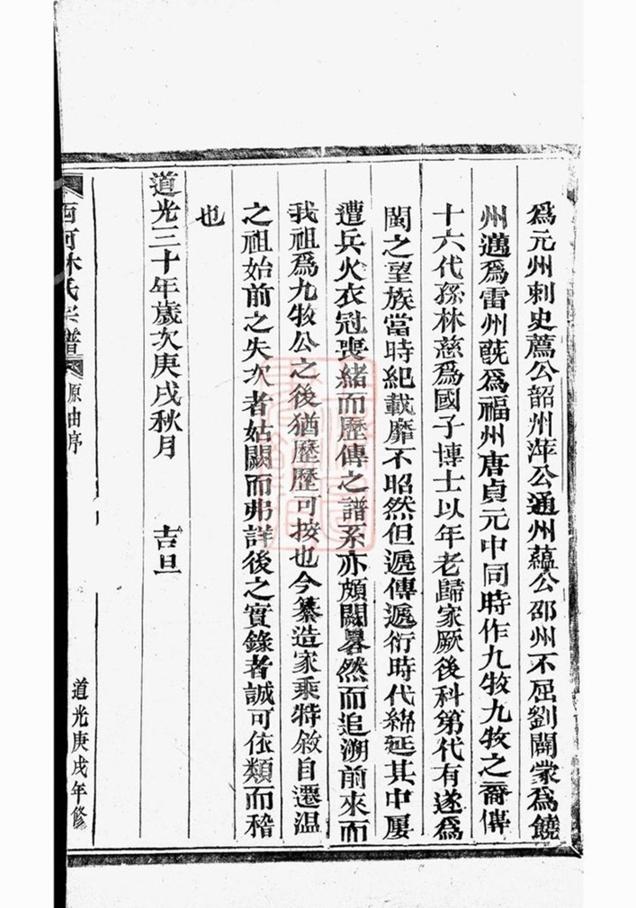 為元州刺史薦公韶州萍公通州蘊公邵州不屈劉闢蒙為饒
州邁為雷州蔇為福州唐貞元中同時作九牧九牧之裔傳
十六代孫林慈為國子博士以年老歸家厥後科第代有遂為
閩之望族當時紀載靡不昭然但遞傳遞衍時代綿延其中屢
遭兵火衣冠喪緒而歷傳之譜系亦頗闕畧然而追溯前來而
我祖為九牧公之後猶歷歷可按也今纂造家乘特敘自遷温
之祖始前之失次者姑闕而弗詳後之實錄者誠可依類而稽
也
道光三十年歲次庚戌秋月 吉旦
西河林氏宗譜 原由序 道光庚戌年修